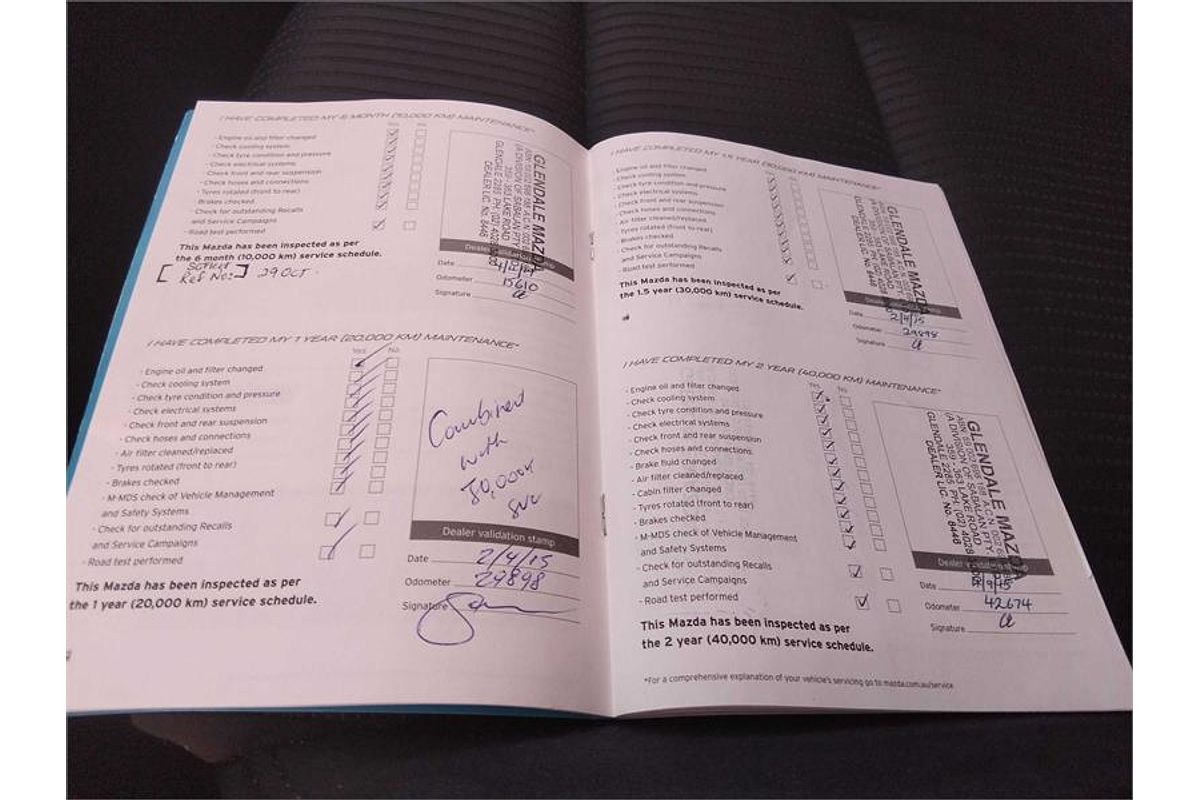 I HAVE COMPLETED MY 6 MONTH (10,000 KM) MAINTENANCE*
- Engine oil and filter changed
- Check cooling system
- Check tyre condition and pressure
- Check electrical systems
- Check front and rear suspension
- Check hoses and connections
- Tyres rotated (front to rear)
Brakes checked
- Check for outstanding Recalls
and Service Campaigns
- Road test performed
This Mazda has been inspected as per
the 6 month (10,000 km) service schedule.
Ref No: 29 OCT.
GLENDALE MAZDA
(A DIVISION OF SABALAN PTY.
LAKE ROAD
GLENDALE 2285 PH. (02)
DEALER LIC. No. 8446
Dealer validation stamp
Date
Odometer 15610
Signature
I HAVE COMPLETED MY 1 YEAR (20,000 KM) MAINTENANCE*
Yes No
- Engine oil and filter changed
- Check cooling system
- Check tyre condition and pressure
- Check electrical systems
- Check front and rear suspension
- Check hoses and connections
- Air filter cleaned/replaced
- Tyres rotated (front to rear)
- Brakes checked
- M-MDS check of Vehicle Management
and Safety Systems
- Check for outstanding Recalls
and Service Campaigns
- Road test performed
This Mazda has been inspected as per
the 1 year (20,000 km) service schedule.
Combined
with
30,000k
SVC
Dealer validation stamp
Date 2/4/15
Odometer 29898
Signature
I HAVE COMPLETED MY 1.5 YEAR (30,000 KM) MAINTENANCE*
- Engine oil and filter changed
- Check cooling system
- Check tyre condition and pressure
- Check electrical systems
- Check front and rear suspension
- Check hoses and connections
- Air filter cleaned/replaced
- Tyres rotated (front to rear)
- Brakes checked
- Check for outstanding Recalls
and Service Campaigns
- Road test performed
This Mazda has been inspected as per
the 1.5 year (30,000 km) service schedule.
GLENDALE MAZDA
Date 2/4/15
Odometer 29898
Signature
I HAVE COMPLETED MY 2 YEAR (40,000 KM) MAINTENANCE*
Yes No
- Engine oil and filter changed
- Check cooling system
- Check tyre condition and pressure
- Check electrical systems
- Check front and rear suspension
- Check hoses and connections
- Brake fluid changed
- Air filter cleaned/replaced
- Cabin filter changed
- Tyres rotated (front to rear)
- Brakes checked
- M-MDS check of Vehicle Management
and Safety Systems
- Check for outstanding Recalls
and Service Campaigns
- Road test performed
This Mazda has been inspected as per
the 2 year (40,000 km) service schedule.
GLENDALE MAZDA
(A DIVISION OF SABALAN PTY.
LAKE ROAD
GLENDALE 2285 PH. (02) 4028
DEALER LIC. No 8446
Dealer validation stamp
Date
Odometer 42674
Signature
*For a comprehensive explanation of your vehicle's servicing go to mazda.com.au/service